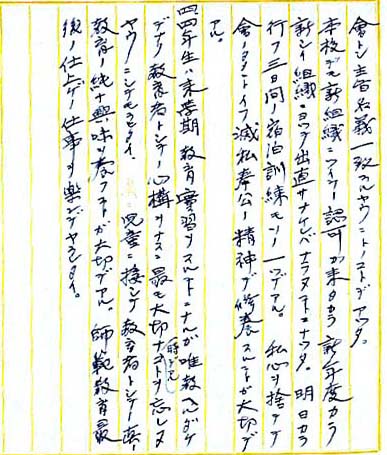 會トシ主旨名義一致スルヤウニトノコトデアッタ。
本校デモ新組織ニツイテ認可ガ来タカラ新年度カラ
新シイ組織ニヨッテ出直サナケレバナラヌコトニナッタ。明日カラ
行フ三日間ノ宿泊訓練モソノ一ツデアル。私心ヲ捨テテ
會ノタメトイフ滅私奉公ノ精神デ修養スルコトガ大切デ
アル。
四四年生ハ来学期教育実習ヲスルコトニナルガ唯教ヘルダケ
デナク教育者トシテノ心構ヲナス最モ大切ナ時デアルコトヲ忘レヌ
ヤウニシテモラヒタイ。児童ニ接シテ教育者トシテ真ノ
教育ノ純ナ興味ヲ養フコトガ大切デアル。師範教育最
後ノ仕上ゲノ仕事ヲ楽シンデヤラレタイ。